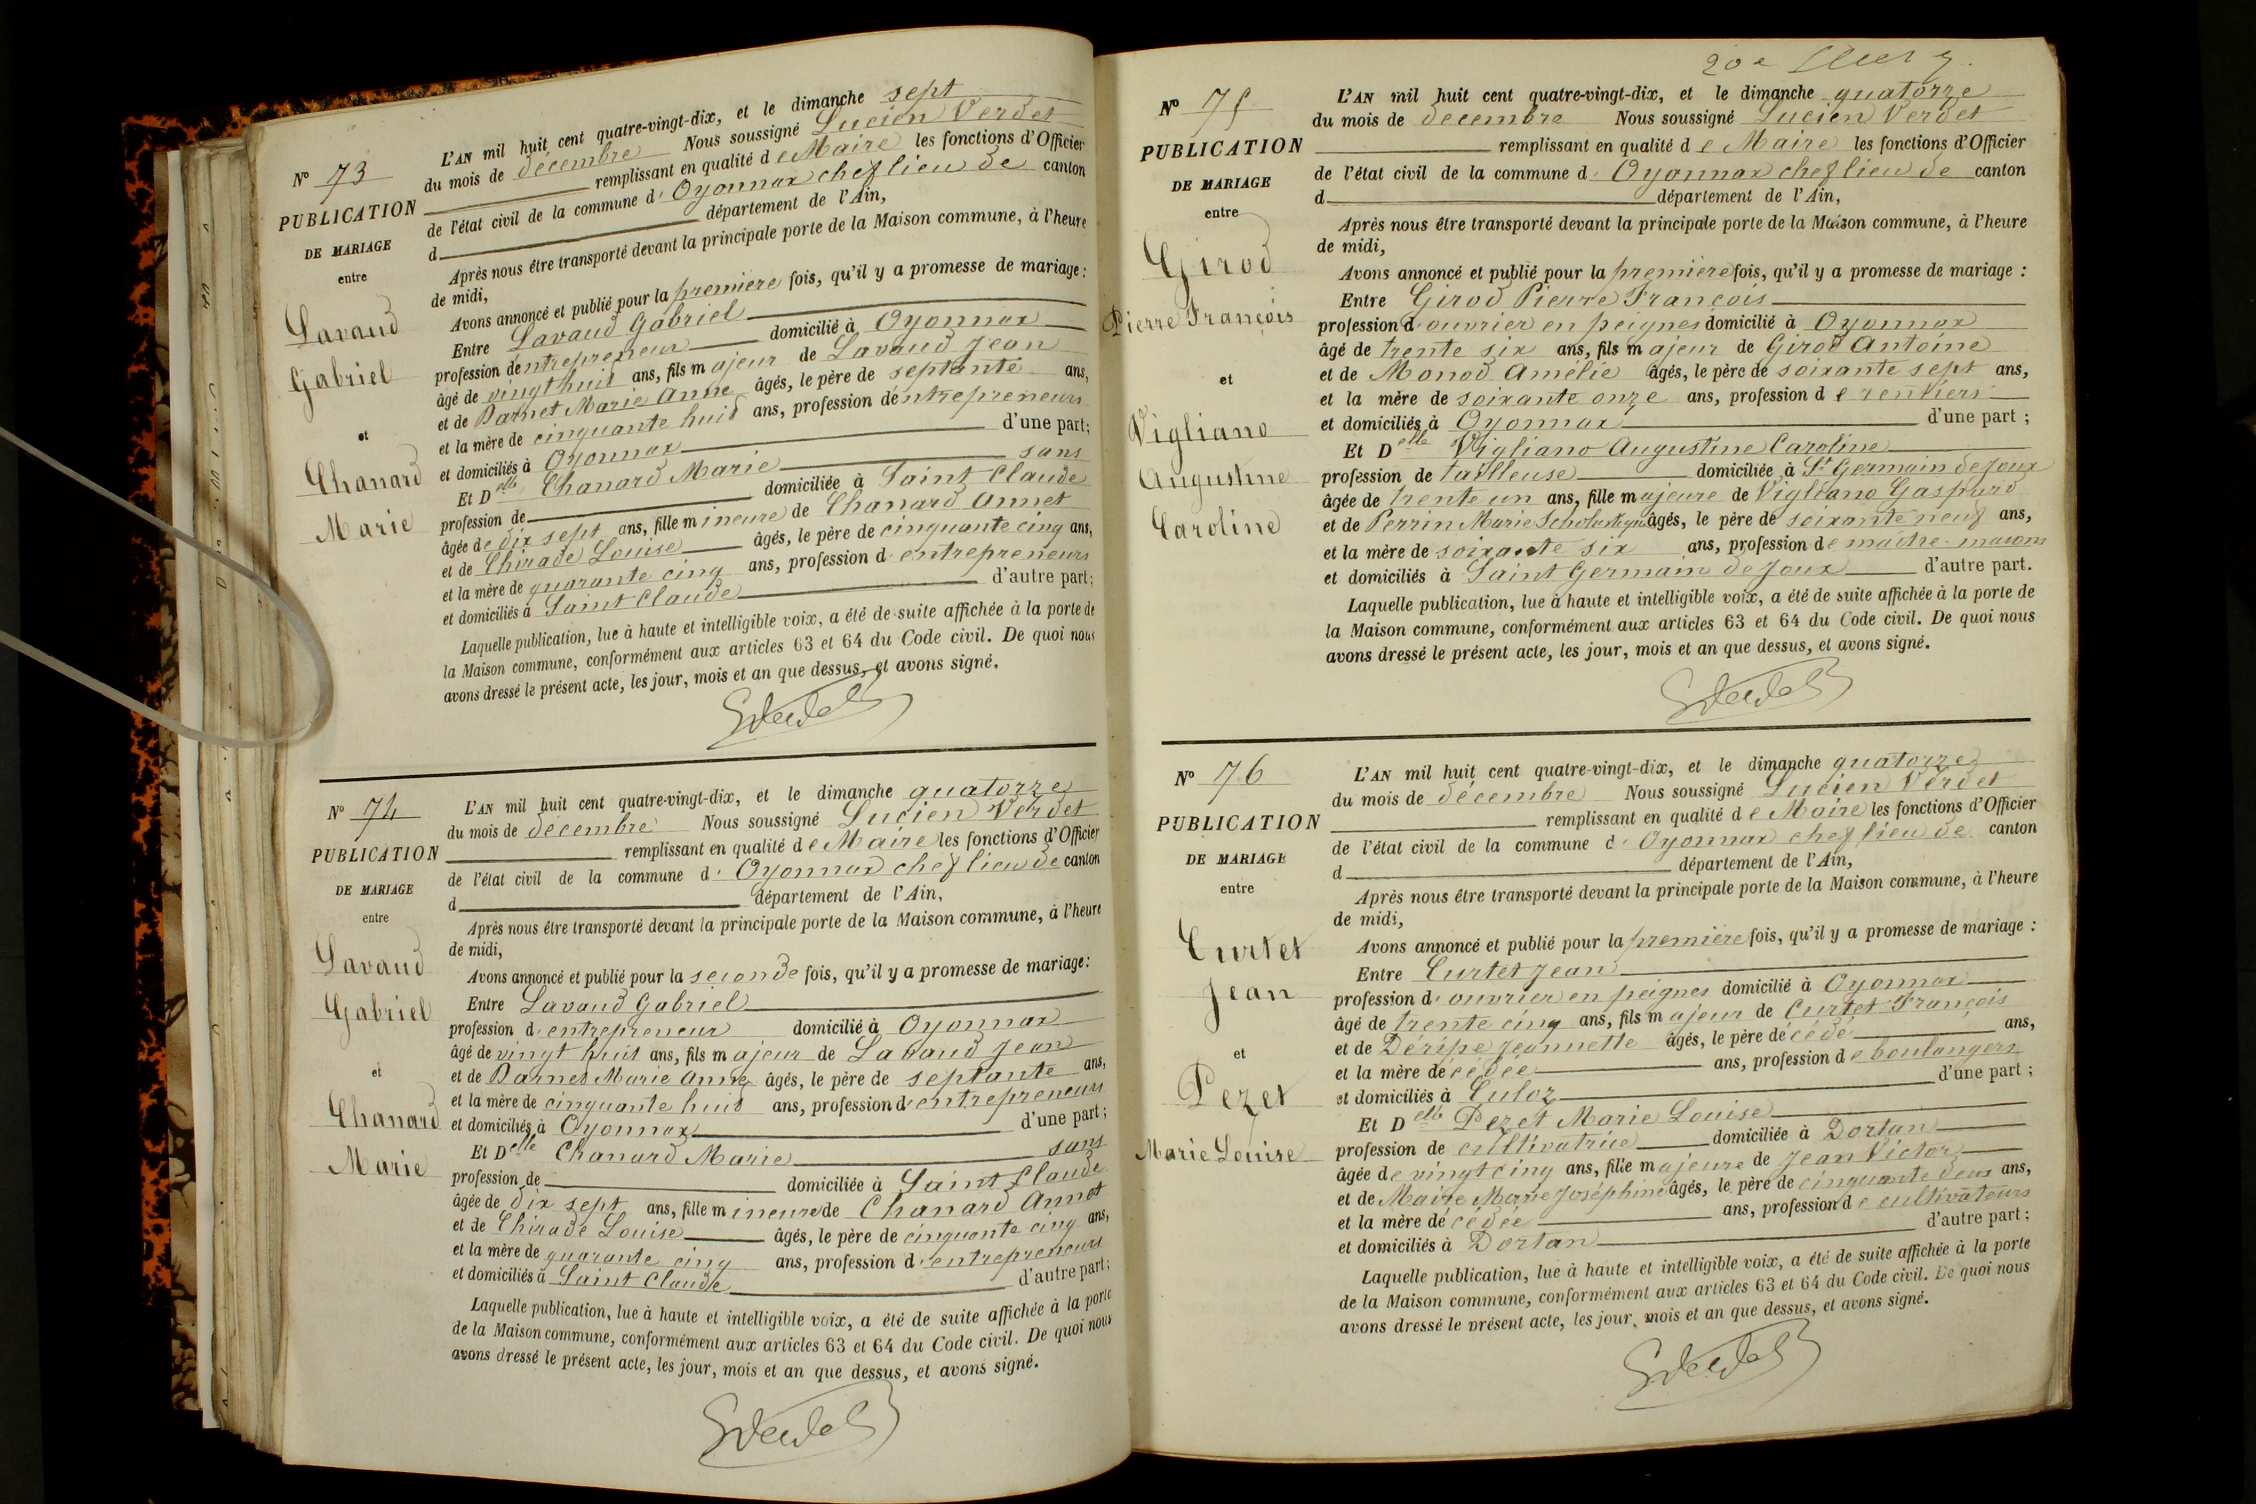 N° 73
PUBLICATION
DE MARIAGE
entre
Lavaud
Gabriel
et
Chanard
Marie
L'AN mil huit cent quatre-vingt-dix, et le dimanche sept
du mois de décembre Nous soussigné Lucien Verdet
remplissant en qualité de Maire les fonctions d'Officier
de l'état civil de la commune d' Oyonnax chef lieu de canton
d département de l'Ain,
Après nous être transporté devant la principale porte de la Maison commune, à l'heure
de midi,
Avons annoncé et publié pour la première fois, qu'il y a promesse de mariage :
Entre Lavaud Gabriel
profession d'entrepreneur domicilié à Oyonnax
âgé de vingt huit ans, fils majeur de Lavaud Jean
et de Darnet Marie Anne âgés, le père de septante ans,
et la mère de cinquante huit ans, profession d'entrepreneurs
et domiciliés à Oyonnax d'une part;
Et Delle Chanard Marie sans
profession de domiciliée à Saint Claude
âgée de dix sept ans, fille mineure de Chanard Annet
et de Chirade Louise âgés, le père de cinquante cinq ans,
et la mère de quarante cinq ans, profession d'entrepreneurs
et domiciliés à Saint Claude d'autre part;
Laquelle publication, lue à haute et intelligible voix, a été de suite affichée à la porte de
la Maison commune, conformément aux articles 63 et 64 du Code civil. De quoi nous
avons dressé le présent acte, les jour, mois et an que dessus, et avons signé.
N° 74
PUBLICATION
DE MARIAGE
entre
Lavaud
Gabriel
et
Chanard
Marie
L'AN mil huit cent quatre-vingt-dix, et le dimanche quatorze
du mois de décembre Nous soussigné Lucien Verdet
remplissant en qualité de Maire les fonctions d'Officier
de l'état civil de la commune d' Oyonnax chef lieu de canton
d département de l'Ain,
Après nous être transporté devant la principale porte de la Maison commune, à l'heure
de midi,
Avons annoncé et publié pour la seconde fois, qu'il y a promesse de mariage:
Entre Lavaud Gabriel
profession d'entrepreneur domicilié à Oyonnax
âgé de vingt huit ans, fils majeur de Lavaud Jean
et de Darnet Marie Anne âgés, le père de septante ans,
et la mère de cinquante huit ans, profession d'entrepreneurs
et domiciliés à Oyonnax d'une part;
Et Delle Chanard Marie sans
profession de domiciliée à Saint Claude
âgée de dix sept ans, fille mineure de Chanard Annet
et de Chirade Louise âgés, le père de cinquante cinq ans,
et la mère de quarante cinq ans, profession d'entrepreneurs
et domiciliés à Saint Claude d'autre part;
Laquelle publication, lue à haute et intelligible voix, a été de suite affichée à la porte
de la Maison commune, conformément aux articles 63 et 64 du Code civil. De quoi nous
avons dressé le présent acte, les jour, mois et an que dessus, et avons signé.
20e
N° 75
PUBLICATION
DE MARIAGE
entre
Girod
Pierre François
et
Vigliano
Augustine
Caroline
L'AN mil huit cent quatre-vingt-dix, et le dimanche quatorze
du mois de décembre Nous soussigné Lucien Verdet
remplissant en qualité de Maire les fonctions d'Officier
de l'état civil de la commune d' Oyonnax chef lieu de canton
d département de l'Ain,
Après nous être transporté devant la principale porte de la Maison commune, à l'heure
de midi,
Avons annoncé et publié pour la première fois, qu'il y a promesse de mariage :
Entre Girod Pierre François
profession d'ouvrier en peignes domicilié à Oyonnax
âgé de trente six ans, fils majeur de Girod Antoine
et de Monod Amélie âgés, le père de soixante sept ans,
et la mère de soixante onze ans, profession de rentiers
et domiciliés à Oyonnax d'une part ;
Et Delle Vigliano Augustine Caroline
profession de tailleuse domiciliée à St Germain de Joux
âgée de trente un ans, fille majeure de Vigliano Gaspard
et de Perrin Marie Scholastique âgés, le père de soixante neuf ans,
et la mère de soixante six ans, profession de maître-maçons
et domiciliés à Saint Germain de Joux d'autre part.
Laquelle publication, lue à haute et intelligible voix, a été de suite affichée à la porte de
la Maison commune, conformément aux articles 63 et 64 du Code civil. De quoi nous
avons dressé le présent acte, les jour, mois et an que dessus, et avons signé.
N° 76
PUBLICATION
DE MARIAGE
entre
Curtet
Jean
et
Pezet
Marie Louise
L'AN mil huit cent quatre-vingt-dix, et le dimanche quatorze
du mois de décembre Nous soussigné Lucien Verdet
remplissant en qualité de Maire les fonctions d'Officier
de l'état civil de la commune d' Oyonnax chef lieu de canton
d département de l'Ain,
Après nous être transporté devant la principale porte de la Maison commune, à l'heure
de midi,
Avons annoncé et publié pour la première fois, qu'il y a promesse de mariage :
Entre Curtet Jean
profession d'ouvrier en peignes domicilié à Oyonnax
âgé de trente cinq ans, fils majeur de Curtet François
et de Déripe Jeannette âgés, le père décédé ans,
et la mère décédée ans, profession de boulangers
et domiciliés à Culoz d'une part ;
Et Delle Pezet Marie Louise
profession de cultivatrice domiciliée à Dortan
âgée de vingt cinq ans, fille majeure de Jean Victor
et de Maire Marie Joséphine âgés, le père de cinquante deux ans,
et la mère décédée ans, profession de cultivateurs
et domiciliés à Dortan d'autre part ;
Laquelle publication, lue à haute et intelligible voix, a été de suite affichée à la porte
de la Maison commune, conformément aux articles 63 et 64 du Code civil. De quoi nous
avons dressé le présent acte, les jour, mois et an que dessus, et avons signé.